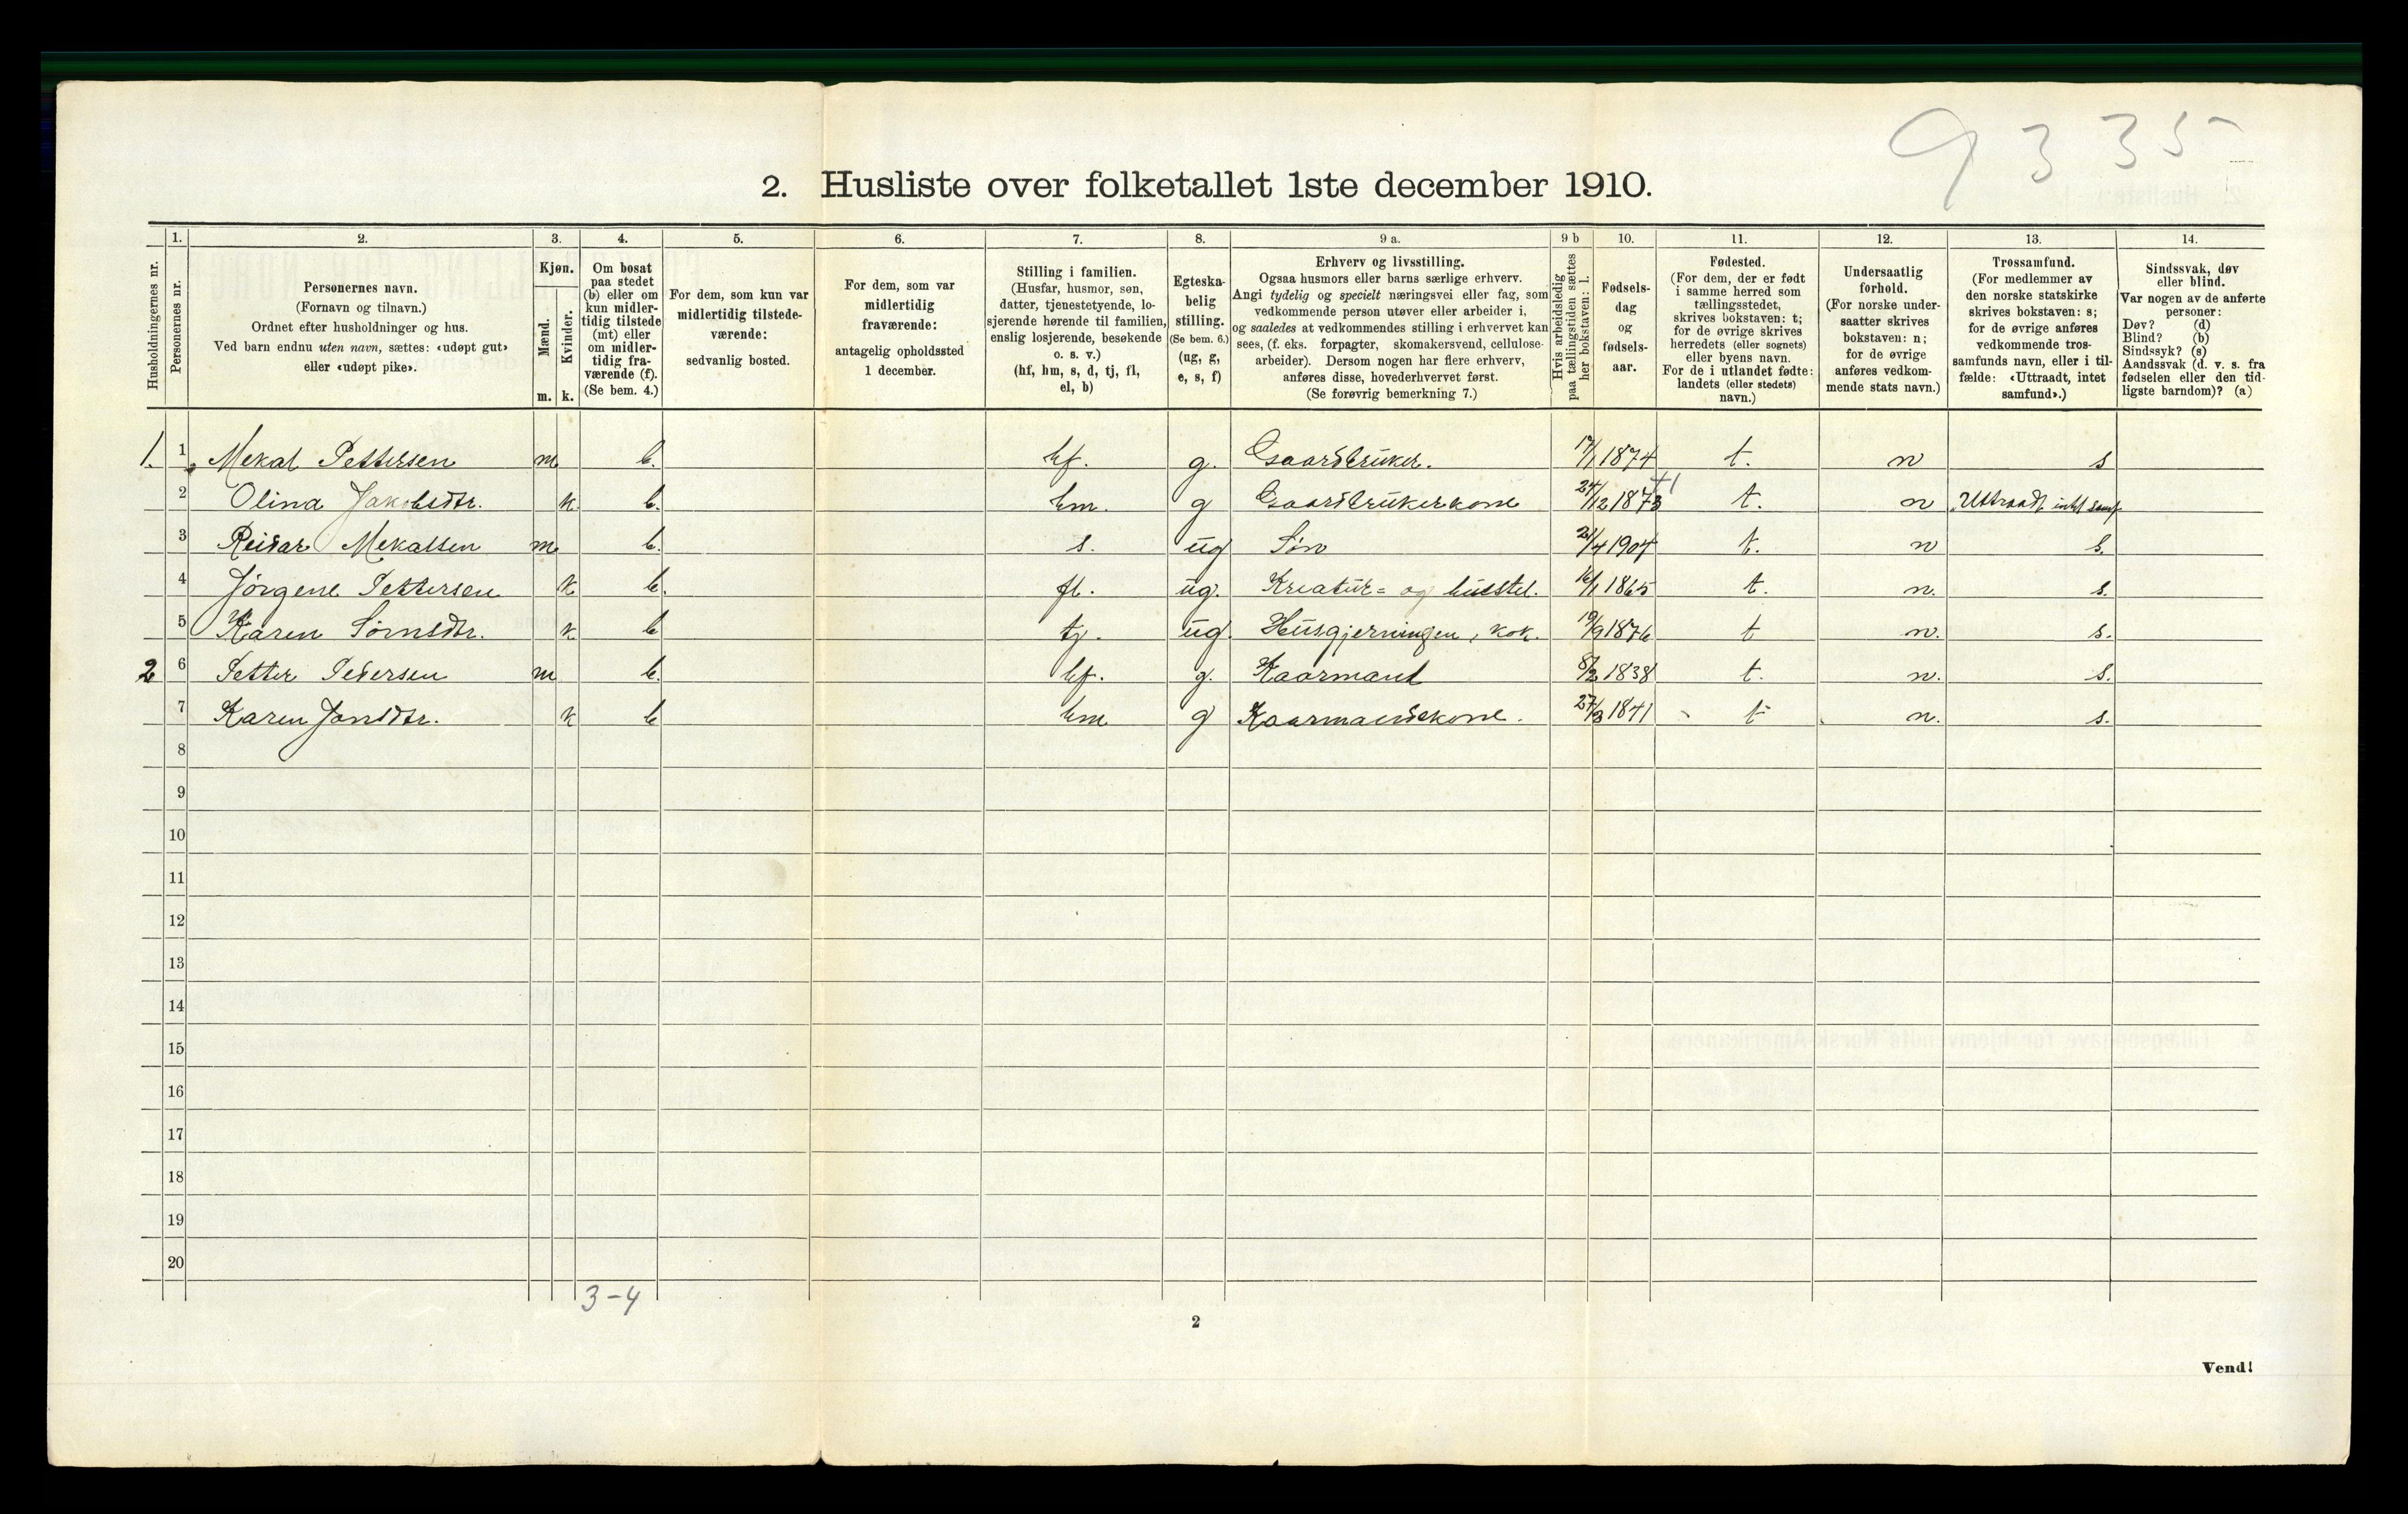 9 3 3 5
2. Husliste over folketallet 1ste december 1910.
Husholdningernes nr.
1. Personernes nr.
2. Personernes navn.
(Fornavn og tilnavn.)
Ordnet efter husholdninger og hus.
Ved barn endnu uten navn, sættes: «udøpt gut»
eller «udøpt pike».
3. Kjøn.
Mænd. m.
Kvinder. k.
4. Om bosat
paa stedet
(b) eller om
kun midler-
tidig tilstede
(mt) eller
om midler-
tidig fra-
værende (f).
(Se bem. 4.)
5. For dem, som kun var
midlertidig tilstede-
værende:
sedvanlig bosted.
6. For dem, som var
midlertidig
fraværende:
antagelig opholdssted
1 december.
7. Stilling i familien.
(Husfar, husmor, søn,
datter, tjenestetyende, lo-
sjerende hørende til familien,
enslig losjerende, besøkende
o. s. v.)
(hf, hm, s, d, tj, fl,
el, b)
8. Egteska-
belig
stilling.
(Se bem. 6.)
(ug, g,
e, s, f)
9 a. Erhverv og livsstilling.
Ogsaa husmors eller barns særlige erhverv.
Angi tydelig og specielt næringsvei eller fag, som
vedkommende person utøver eller arbeider i,
og saaledes at vedkommendes stilling i erhvervet kan
sees, (f. eks. forpagter, skomakersvend, cellulose-
arbeider). Dersom nogen har flere erhverv,
anføres disse, hovederhvervet først.
(Se forøvrig bemerkning 7.)
9 b Hvis arbeidsledig
paa tællingstiden sættes
her bokstaven: l.
10. Fødsels-
dag
og
fødsels-
aar.
11. Fødested.
(For dem, der er født
i samme herred som
tællingsstedet,
skrives bokstaven: t;
for de øvrige skrives
herredets (eller sognets)
eller byens navn.
For de i utlandet fødte:
landets (eller stedets)
navn.)
12. Undersaatlig
forhold.
(For norske under-
saatter skrives
bokstaven: n;
for de øvrige
anføres vedkom-
mende stats navn.)
13. Trossamfund.
(For medlemmer av
den norske statskirke
skrives bokstaven: s;
for de øvrige anføres
vedkommende tros-
samfunds navn, eller i til-
fælde: «Uttraadt, intet
samfund».)
14. Sindssvak, døv
eller blind.
Var nogen av de anførte
personer:
Døv? (d)
Blind? (b)
Sindssyk? (s)
Aandssvak (d. v. s. fra
fødselen eller den tid-
ligste barndom)? (a)
1. 1 Mekal Pettersen m b. hf. g. Gaardbruker. 17/1 1874 t. n s
2 Olina Jakobsdtr. k. b. hm. g Gaardbrukerkone 24/12 1873 t. n Uttraadt intet samf
3 Reidar Mekalsen m b. s. ug Søn 21/4 1904 t. n s.
4 Jørgene Pettersen k b. fl. ug. Kreatur= og husstel. 16/1 1865 t. n. s.
5 Karen Sørnsdtr. k b tj. ug. Husgjerningen, kok. 19/9 1876 t n. s.
2 6 Petter Pedersen m b. hf. g. Kaarmand 8/2 1838 t. n. s.
7 Karen Jonsdtr. k b hm g Kaarmandskone. 27/3 1841 t n. s.
8
9
10
11
12
13
14
15
16
17
18
19
20
3-4
2
Vend!